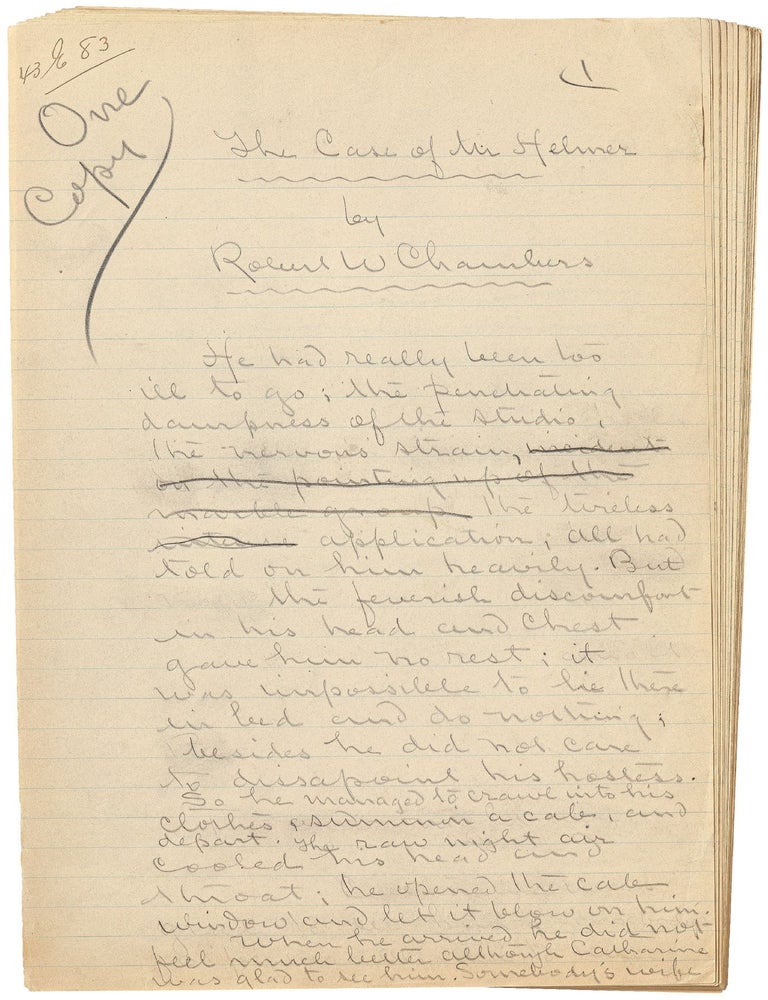 43 83
1
One
Copy
The Case of Mr Helmer
by
Robert W Chambers
He had really been too
ill to go; the penetrating
dampness of the studio,
the nervous strain, incident
on the pointing up of the
marble group the tireless
intense application; all had
told on him heavily. But
the feverish discomfort
in his head and chest
gave him no rest; it
was impossible to lie there
in bed and do nothing;
besides he did not care
to dissapoint his hostess.
So he managed to crawl into his
clothes, summon a cab, and
depart. The raw night air
cooled his head and
throat; he opened the cab
window and let it blow on him.
When he arrived he did not
feel much better although Catharine
was glad to see him. Somebody's wife